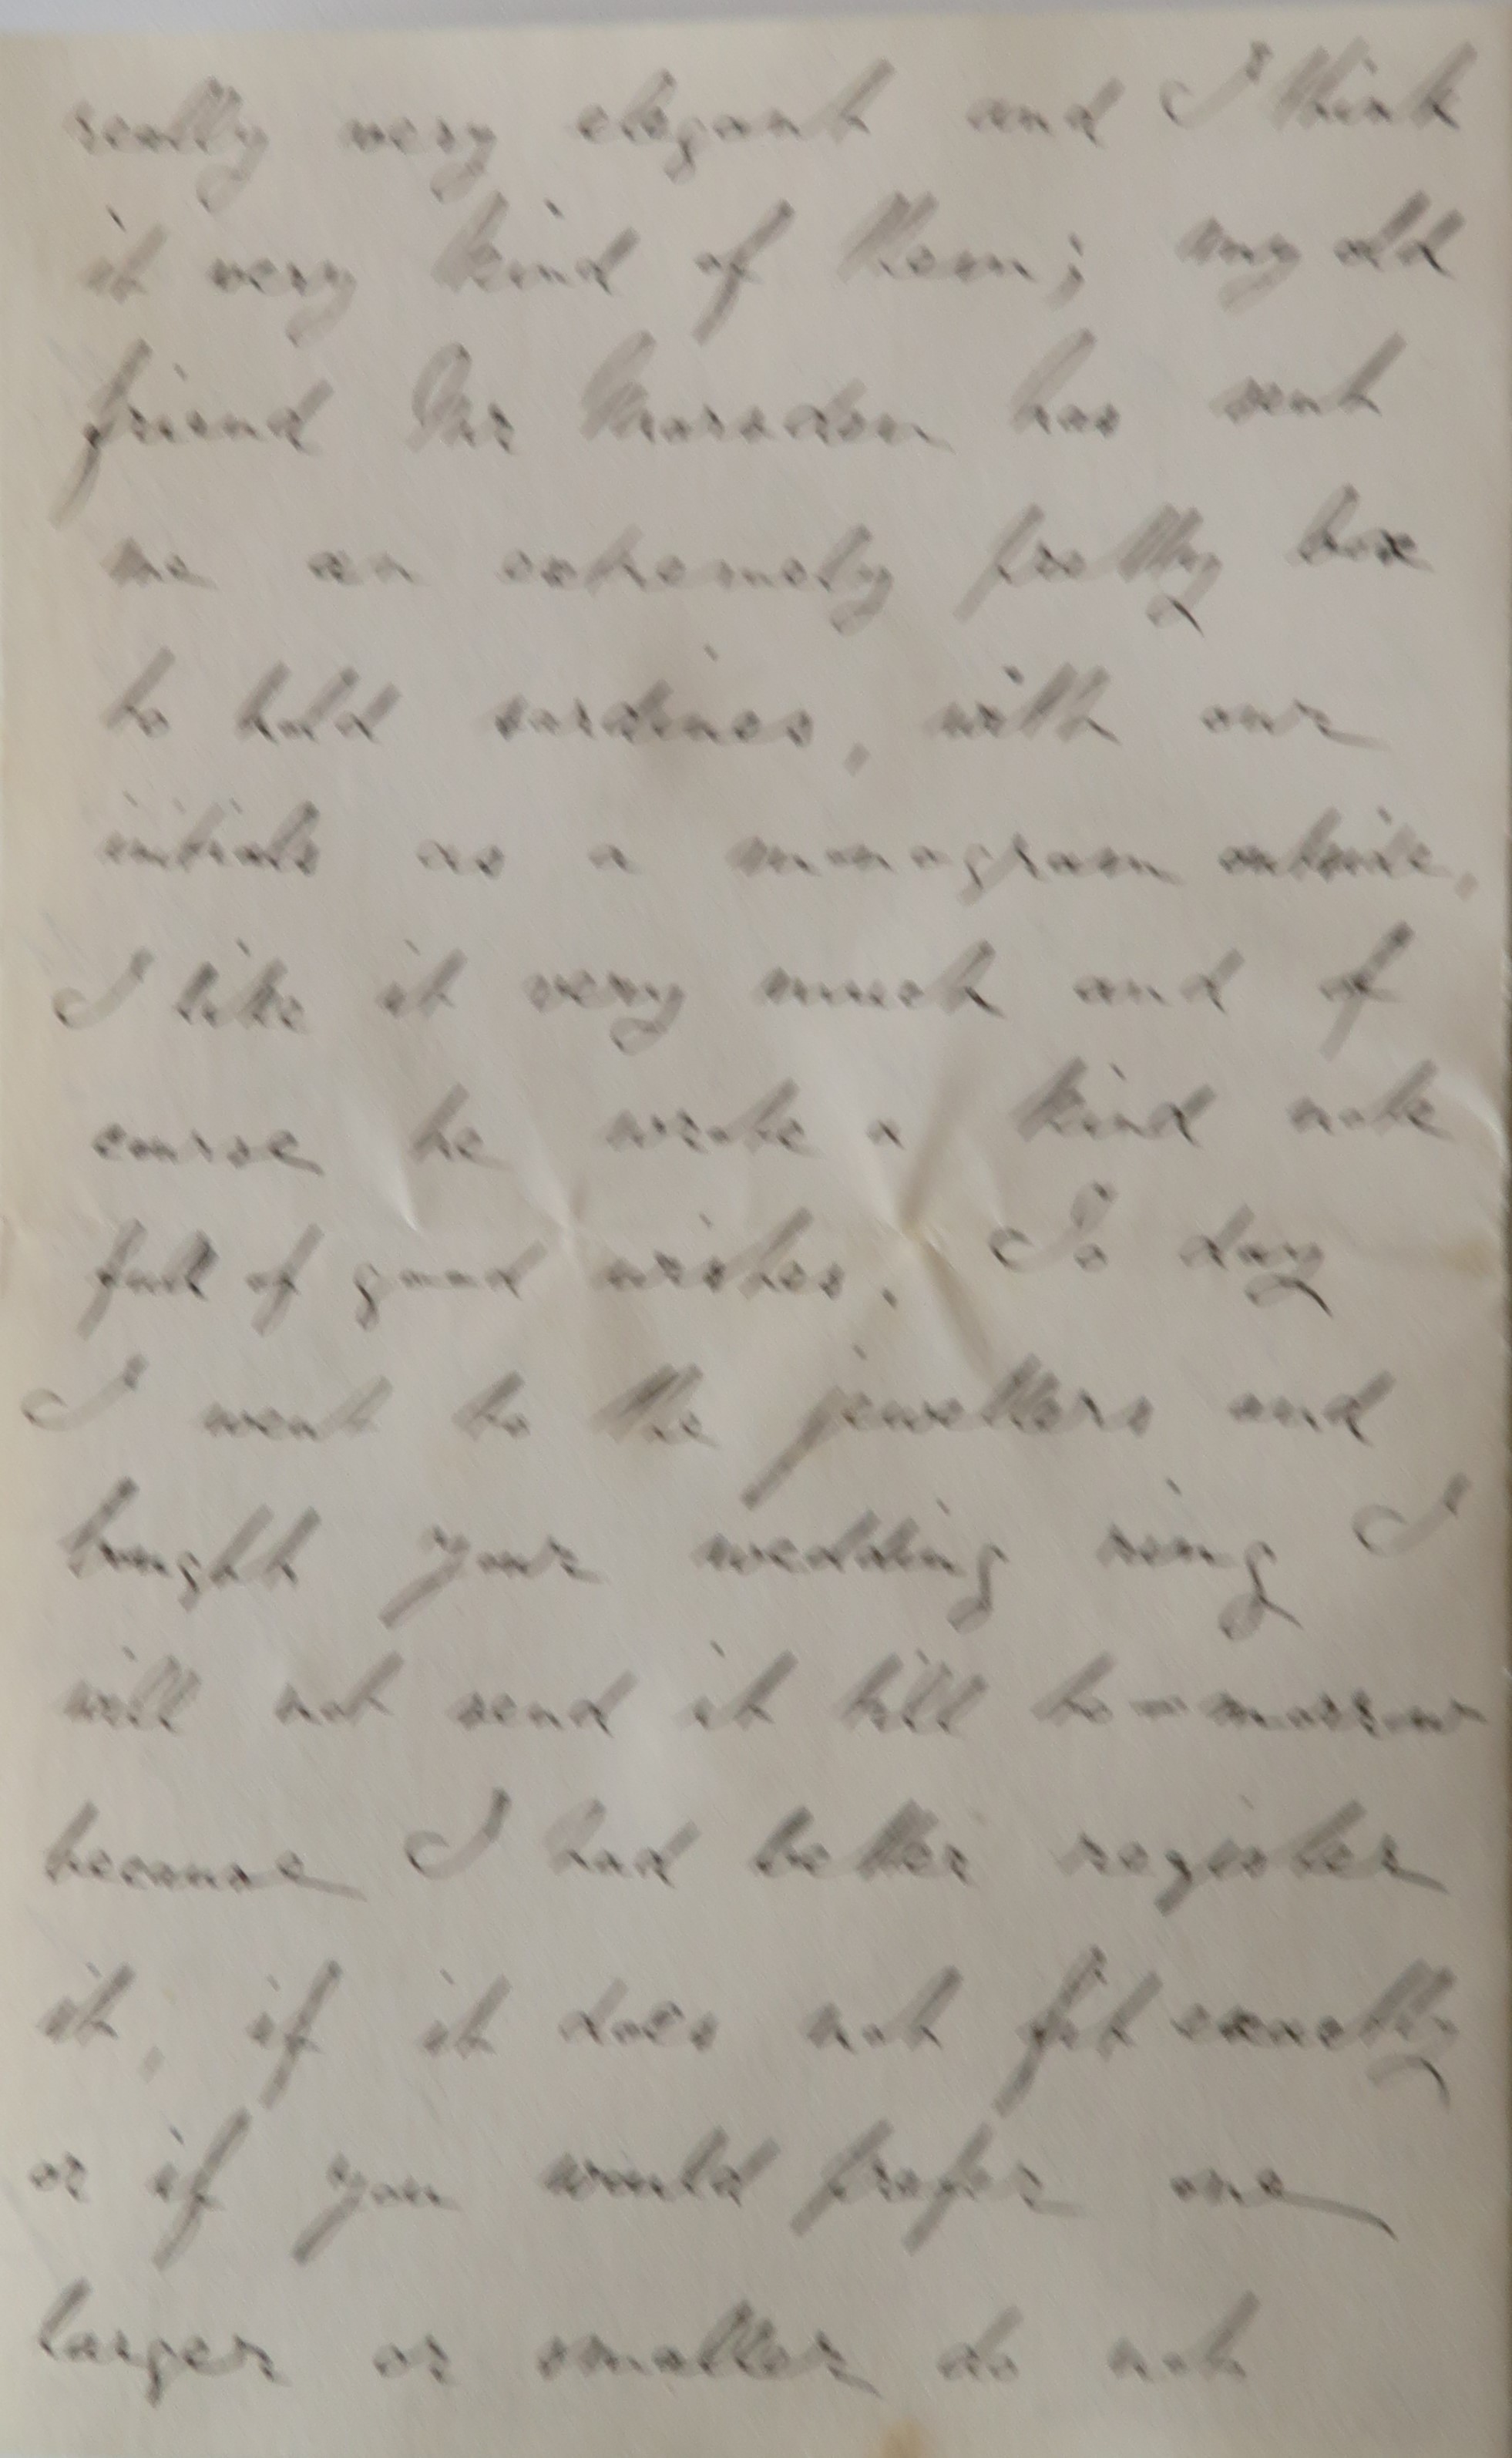 really very elegant and I think
it very kind of them; my old
friend Mr Marsden has sent
me an extremely pretty box
to hold sardines, with our
initials as a monogram outside,
I like it very much and of
course he wrote a kind note
full of good wishes. To day
I went to the jewellers and
bought your wedding ring I
will not send it till to-morrow
because I had better register
it, if it does not fit exactly
or if you would prefer one
larger or smaller do not